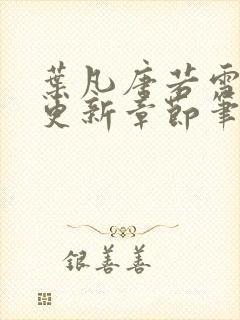 葉凡唐若雪
更新章節筆
銀善善